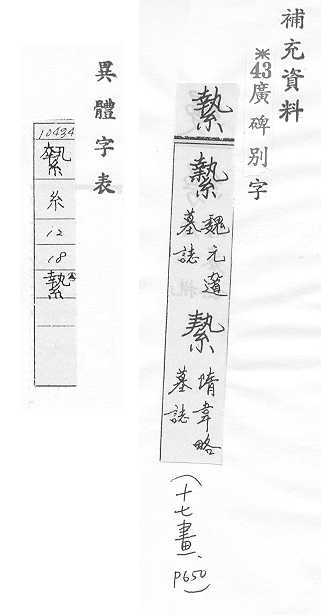 補充資料
※43廣碑別字
縶
縶
魏元
墓誌
縶
隋韋略
墓誌
(十七畫、P650)
異體字表
10434
縶
糸
12
18
縶